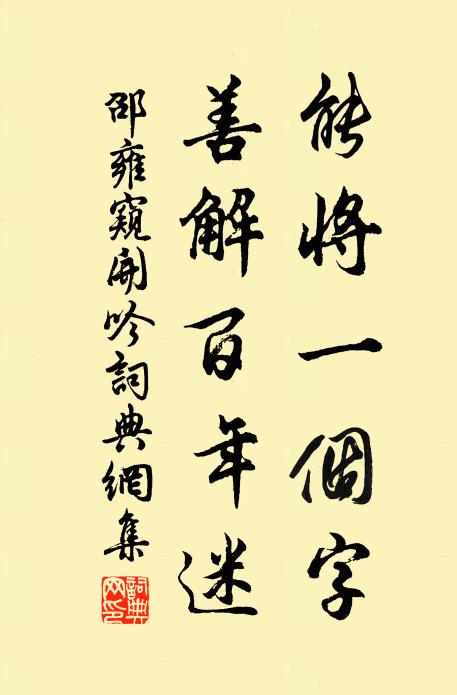 能將一個字
善解百年迷
邵雍窺開吟詞典網集
詞典網印